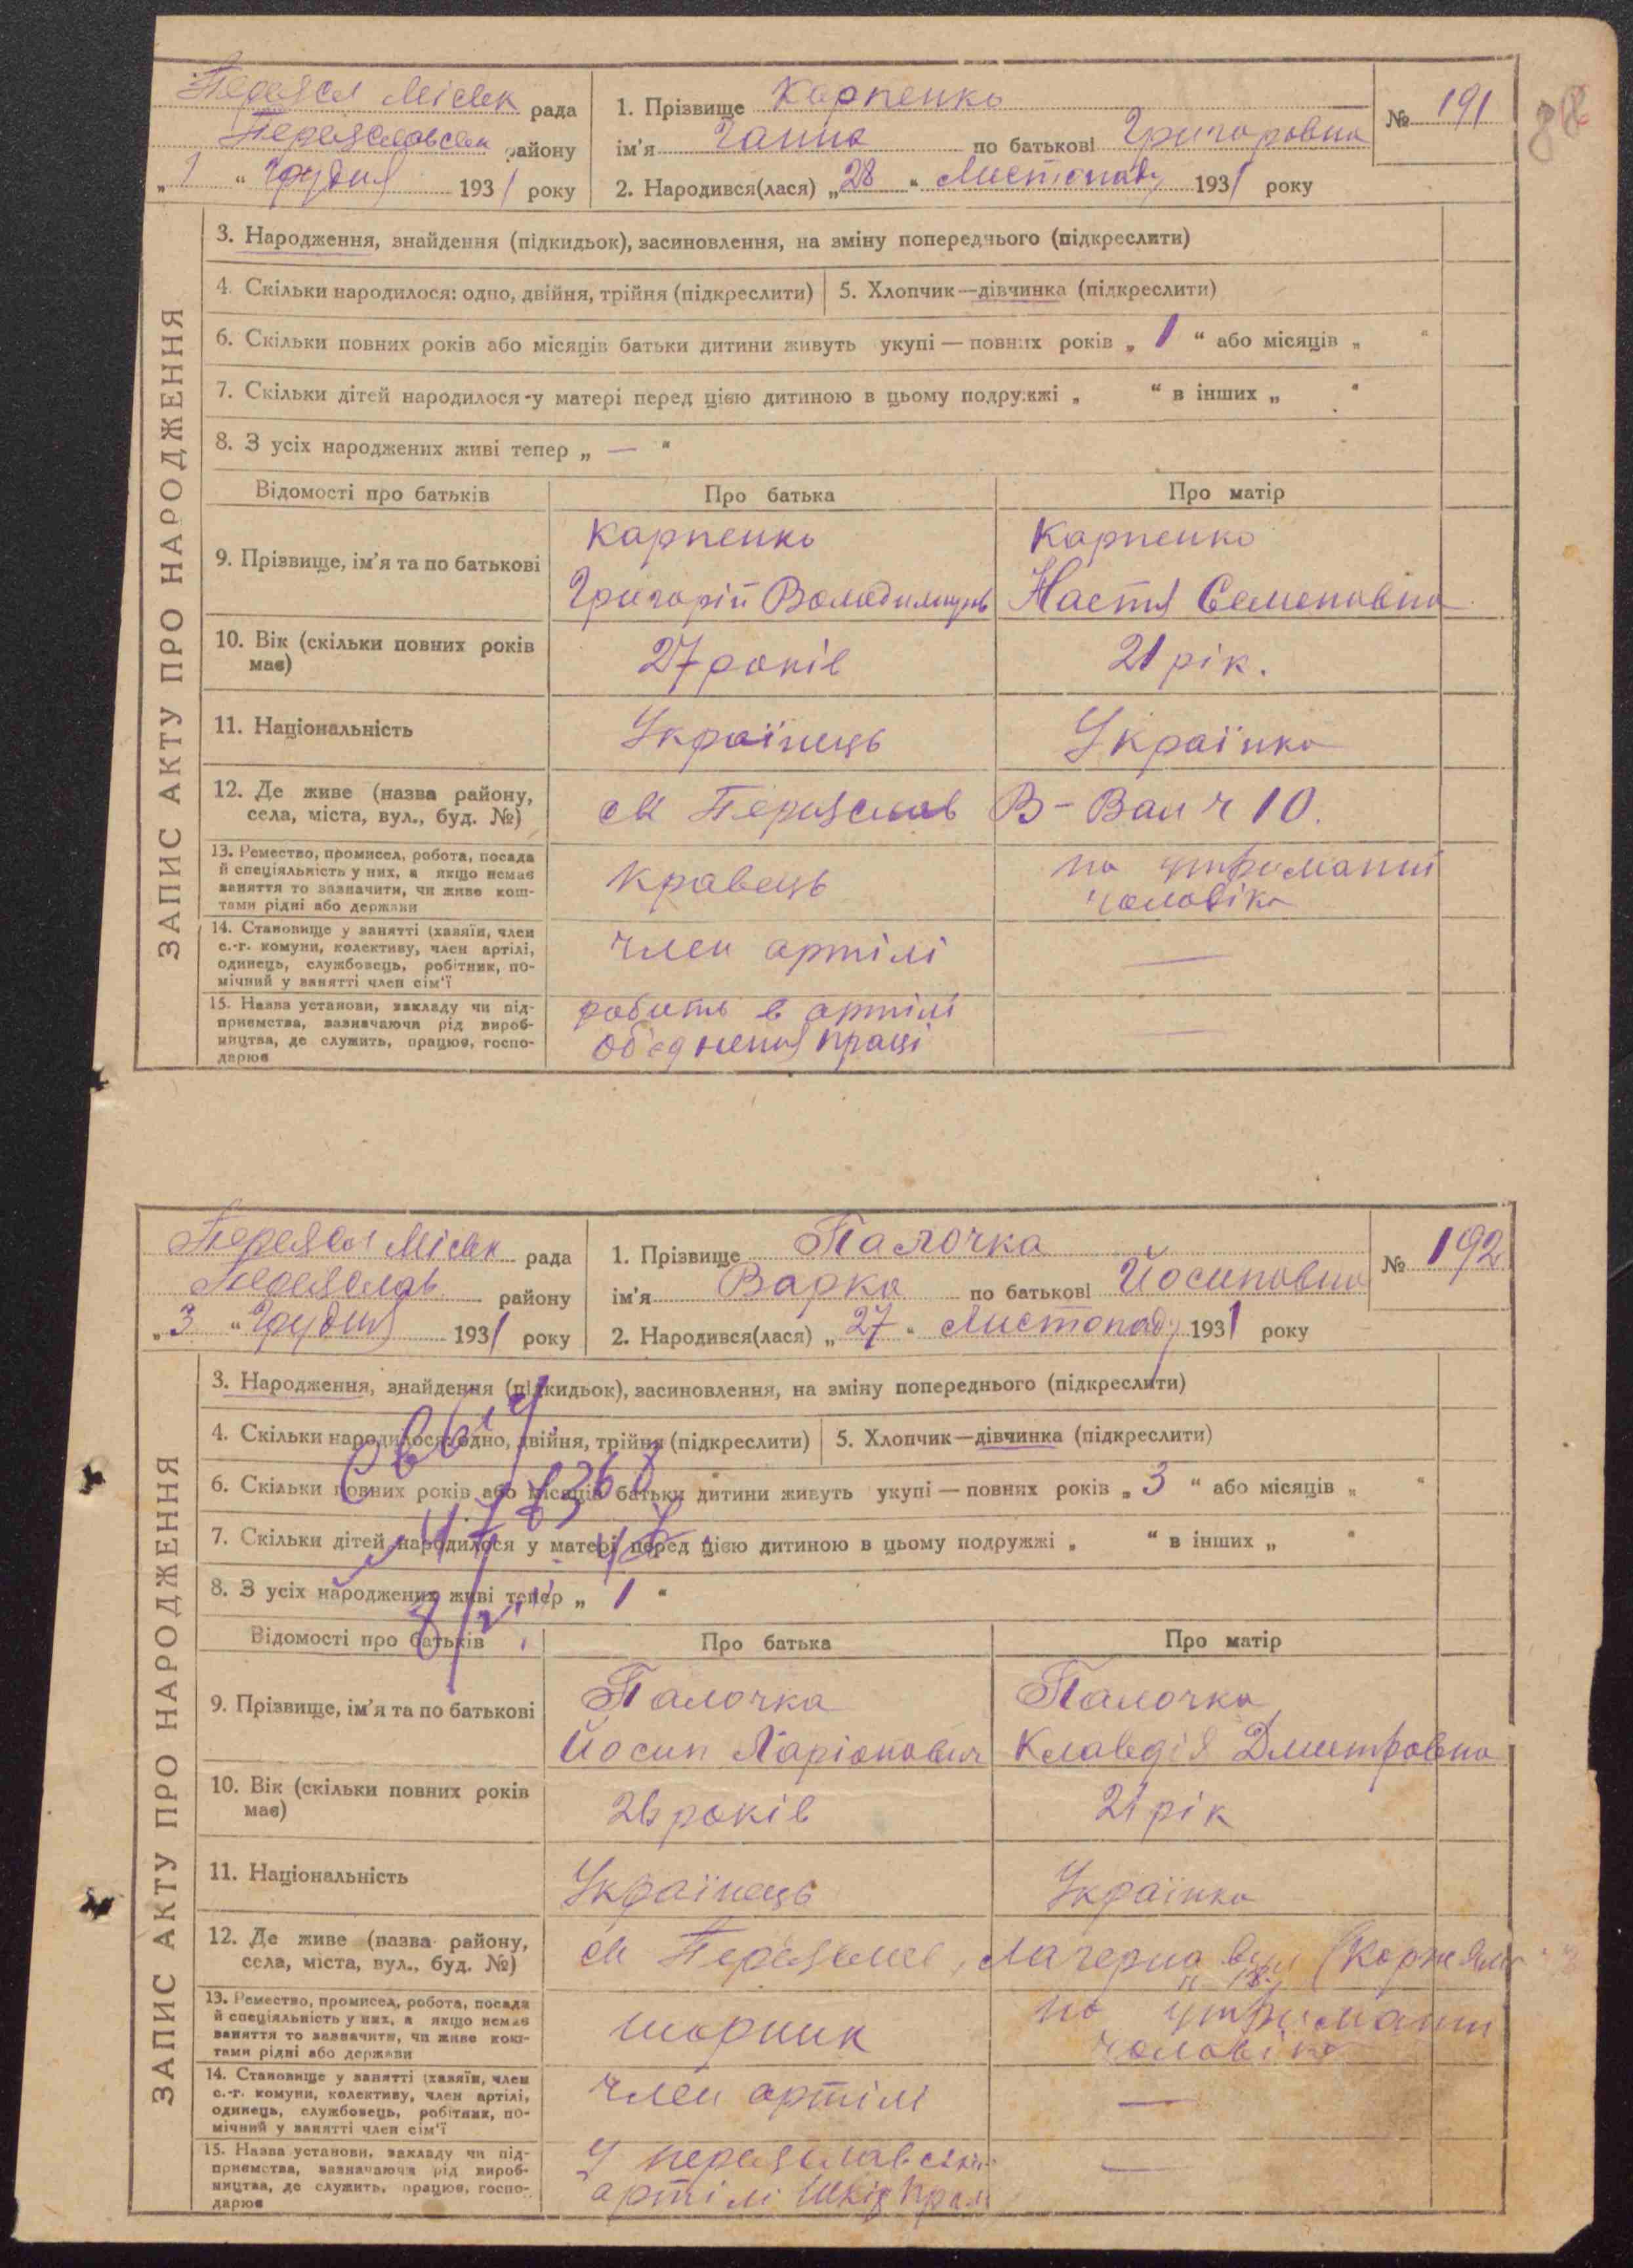 Переясл Міськ рада
Переяславськ району
„1“ Грудня 1931 року
1. Прізвище Карпенко
ім'я Ганна по батькові Григоровна
2. Народився(лася) „28“ Листопаду 1931 року
№ 191
88
ЗАПИС АКТУ ПРО НАРОДЖЕННЯ
3. Народження, знайдення (підкидьок), засиновлення, на зміну попереднього (підкреслити)
4. Скільки народилося: одно, двійня, трійня (підкреслити) 5. Хлопчик—дівчинка (підкреслити)
6. Скільки повних років або місяців батьки дитини живуть укупі — повних років „1“ або місяців „ “
7. Скільки дітей народилося у матері перед цією дитиною в цьому подружжі „ “ в інших „ “
8. З усіх народжених живі тепер „ — “
Відомості про батьків Про батька Про матір
9. Прізвище, ім'я та по батькові
Карпенко
Григорій Володимиров
Карпенко
Настя Семеновна
10. Вік (скільки повних років
має)
27 років
21 рік.
11. Національність
Українець
Українка
12. Де живе (назва району,
села, міста, вул., буд. №)
м Переяслав В-Вал ч 10.
13. Ремество, промисел, робота, посада
й спеціяльність у них, а якщо немає
заняття то зазначити, чи живе кош-
тами рідні або держави
кравець
на утриманні
чоловіка
14. Становище у занятті (хазяїн, член
с.-г. комуни, колективу, член артілі,
одинець, службовець, робітник, по-
мічний у занятті член сім'ї
член артілі
—
15. Назва установи, закладу чи під-
приємства, зазначаючи рід вироб-
ництва, де служить, працює, госпо-
дарює
робить в артілі
об'єднення праці
—
Переясл Міськ рада
Переяслав району
„3“ Грудня 1931 року
1. Прізвище Палочка
ім'я Варка по батькові Йосиповна
2. Народився(лася) „27“ Листопаду 1931 року
№ 192
ЗАПИС АКТУ ПРО НАРОДЖЕННЯ
3. Народження, знайдення (підкидьок), засиновлення, на зміну попереднього (підкреслити)
4. Скільки народилося: одно, двійня, трійня (підкреслити) 5. Хлопчик—дівчинка (підкреслити)
6. Скільки повних років або місяців батьки дитини живуть укупі — повних років „3“ або місяців „ “
7. Скільки дітей народилося у матері перед цією дитиною в цьому подружжі „ “ в інших „ “
8. З усіх народжених живі тепер „1“
Відомості про батьків Про батька Про матір
9. Прізвище, ім'я та по батькові
Палочка
Йосип Ларіонович
Палочка
Клавдія Дмитровна
10. Вік (скільки повних років
має)
26 років
21 рік
11. Національність
Українець
Українка
12. Де живе (назва району,
села, міста, вул., буд. №)
м Переяслав,
13. Ремество, промисел, робота, посада
й спеціяльність у них, а якщо немає
заняття то зазначити, чи живе кош-
тами рідні або держави
шорник
на утриманні
чоловіка
14. Становище у занятті (хазяїн, член
с.-г. комуни, колективу, член артілі,
одинець, службовець, робітник, по-
мічний у занятті член сім'ї
член артілі
—
15. Назва установи, закладу чи під-
приємства, зазначаючи рід вироб-
ництва, де служить, працює, госпо-
дарює
У переяславській
артілі Шкір Пром
—